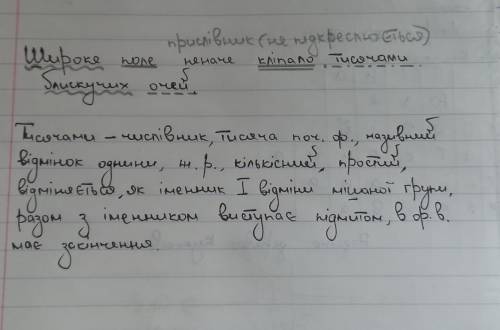 прислівник (не підкреслюється)
Широке поле неначе кліпало тисячами
блискучих очей.
Тисячами – числівник, тисяча поч. ф., називний
відмінок однини, ж.р., кількісний, простий,
відміняється, як іменник I відміни мішаної групи,
разом з іменником виступає підмітом, в ф.в.
має закінчення.